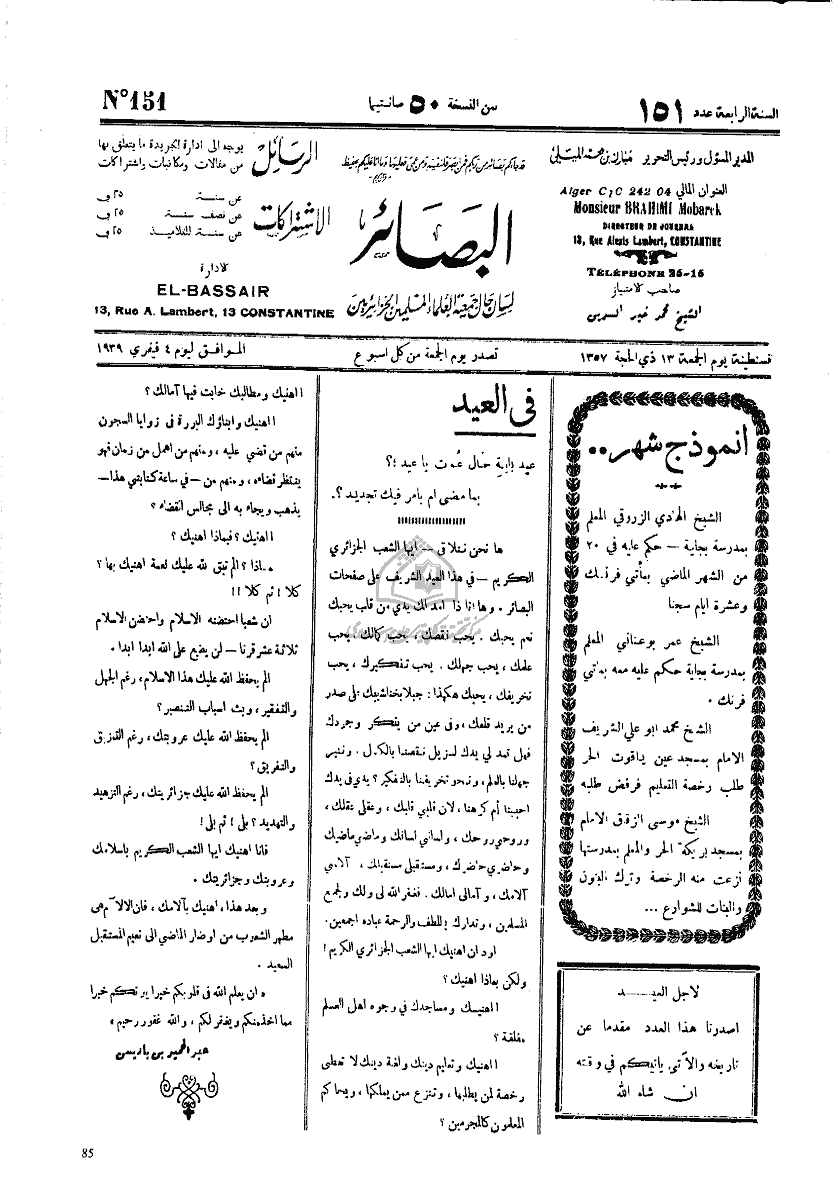 السنة الرابعة عدد ١٥١
ثمن النسخة ٥٠ سانتيما
N° 151
المدير المسؤول ورئيس التحرير مبارك بن محمد الميلي
العنوان المالي
Alger C/C 242 04
Monsieur BRAHIMI Mobarek
DIRECTEUR DE JOURNAL
13, Rue Alexis Lambert, CONSTANTINE
TÉLÉPHONE 26-16
صاحب الامتياز
الشيخ محمد خير الدين
قد جاءكم بصائر من ربكم فمن أبصر فلنفسه ومن عمي فعليها وما أنا عليكم بحفيظ
البصائر
لسان حال جمعية العلماء المسلمين الجزائريين
الرسائل
يوجه الى ادارة الجريدة ما يتعلق بها
من مقالات ومكاتبات واشتراكات
الاشتراكات
عن سنة
عن نصف سنة
عن سنة للتلاميذ
الادارة
EL-BASSAIR
13, Rue A. Lambert, 13 CONSTANTINE
قسنطينة يوم الجمعة ١٣ ذي الحجة ١٣٥٧
تصدر يوم الجمعة من كل اسبوع
الموافق ليوم ٤ فيفري ١٩٣٩
انموذج شهر..
الشيخ الهادي الزروقي المعلم
بمدرسة بجاية — حكم عليه في ٢٠
من الشهر الماضي بمأتي فرنك
وعشرة ايام سجنا
الشيخ عمر بوعناني المعلم
بمدرسة بجاية حكم عليه معه بمأتي
فرنك .
الشيخ محمد ابو علي الشريف
الامام بمسجد عين ياقوت الحر
طلب رخصة التعليم فرفض طلبه
الشيخ موسى الزقاق الامام
بمسجد بريكة الحر والمعلم بمدرستها
نزعت منه الرخصة وترك البنون
والبنات للشوارع ...
لاجل العيد
اصدرنا هذا العدد مقدما عن
تاريخه والآتي يأتيكم في وقته
ان شاء الله
فى العيد
عيد بأية حال عدت يا عيد ؟؟
بما مضى ام بأمر فيك تجديد ؟.
ها نحن نتلاقى — ايها الشعب الجزائري
الكريم — في هذا العيد الشريف على صفحات
البصائر . وها انا ذا امد لك يدي من قلب يحبك
نعم يحبك . يحب نقصك ، يحب كمالك ، يحب
علمك ، يحب جهلك . يحب تفكيرك ، يحب
تخريفك ، يحبك هكذا : جبلا بخناشيبك على صدر
من يريد قلعك ، وفى عين من ينكر وجودك
فهل تمد لي يدك لنزيل نقصنا بالكمال . وننير
جهلنا بالعلم ، ونمحو تخريفنا بالتفكير ؟ يدي في يدك
احببنا أم كرهنا ، لان قلبي قلبك ، وعقلي عقلك ،
وروحي روحك ، ولساني لسانك وماضي ماضيك
وحاضري حاضرك ، ومستقبلي مستقبلك ، آلامي
آلامك ، وآمالي امالك . فغفر الله لي ولك ولجميع
المسلمين ، وتدارك باللطف والرحمة عباده اجمعين .
اود ان اهنيك ايها الشعب الجزائري الكريم !
ولكن بماذا اهنيك ؟
ااهنيك ومساجدك في وجوه اهل العلم
مغلقة ؟
ااهنيك وتعليم دينك ولغة دينك لا تعطى
رخصة لمن يطلبها ، وتنزع ممن يملكها ، ويحاكم
المعلمون كالمجرمين ؟
ااهنيك ومطالبك خابت فيها آمالك ؟
ااهنيك وابناؤك البررة فى زوايا السجون
منهم من قضي عليه ، ومنهم من اهمل من زمان فهو
ينتظر قضاءه ، ومنهم من — في ساعة كتابتي هذا —
يذهب ويجاء به الى مجالس القضاء ؟
ااهنيك ؟ فبماذا اهنيك ؟
ماذا ؟ الم تبق لله عليك نعمة اهنيك بها ؟
كلا ! ثم كلا !!
ان شعبا احتضنه الاسلام واحتضن الاسلام
ثلاثة عشر قرنا — لن يضيع على الله ابدا ابدا .
الم يحفظ الله عليك هذا الاسلام ، رغم الجهل
والتفقير ، وبث اسباب التنصير ؟
الم يحفظ الله عليك عروبتك ، رغم التمزيق
والتفريق ؟
الم يحفظ الله عليك جزائريتك ، رغم التزهيد
والتهديد ؟ بلى ! ثم بلى !
فانا اهنيك ايها الشعب الكريم باسلامك
وعروبتك وجزائريتك .
وبعد هذا ، اهنيك بآلامك ، فان الآلام هى
مطهر الشعوب من اوضار الماضي الى نعيم المستقبل
السعيد .
« ان يعلم الله فى قلوبكم خيرا يؤتكم خيرا
مما اخذ منكم ويغفر لكم ، والله غفور رحيم »
عبد الحميد بن باديس
85